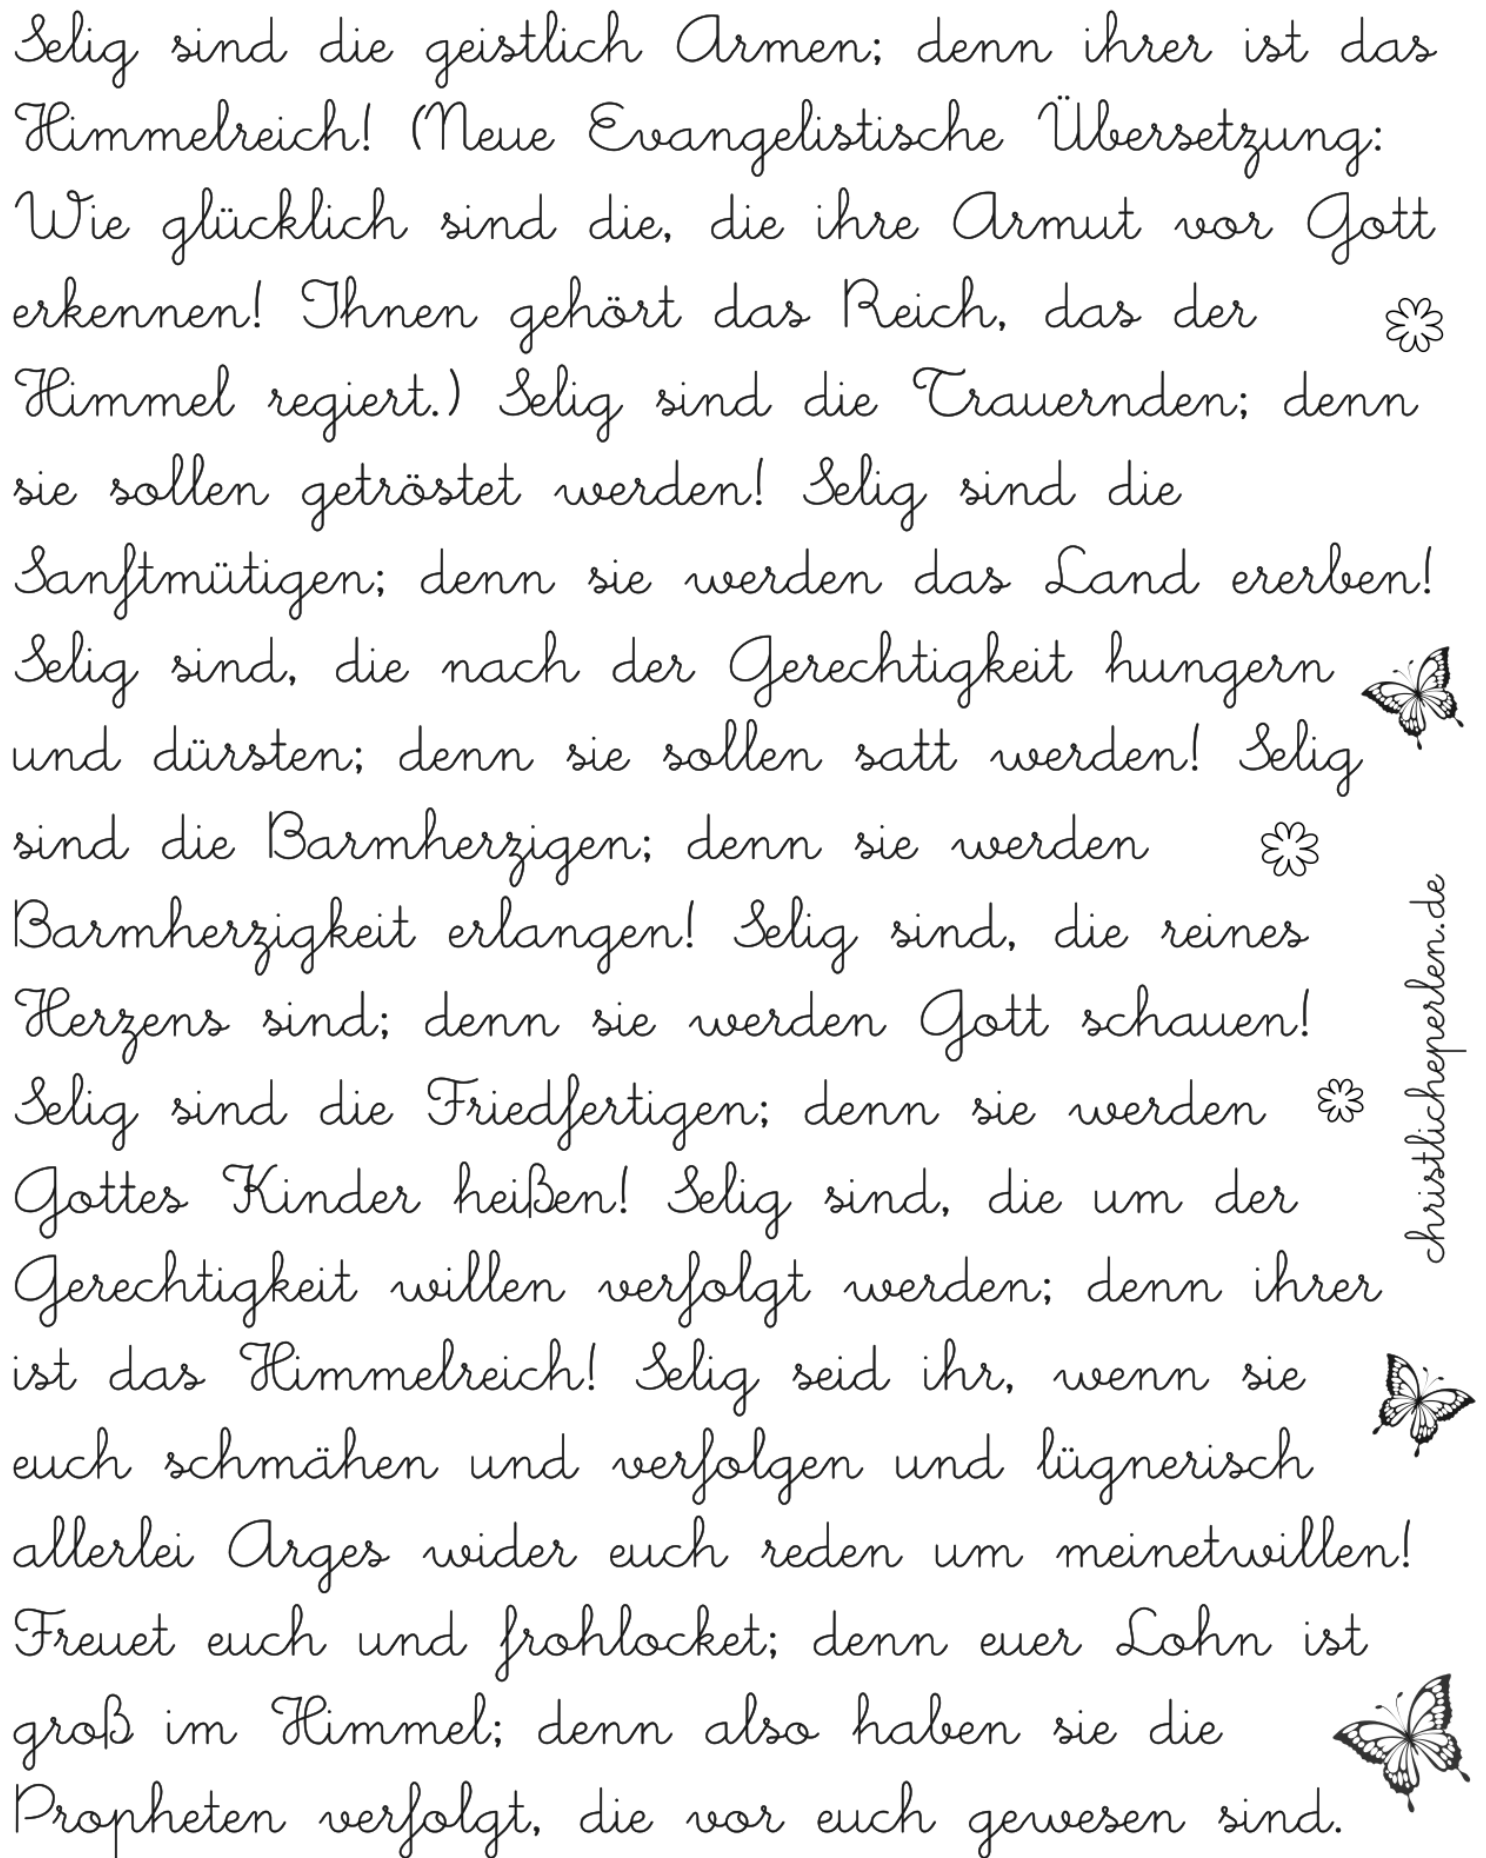 Selig sind die geistlich Armen; denn ihrer ist das
Himmelreich! (Neue Evangelistische Übersetzung:
Wie glücklich sind die, die ihre Armut vor Gott
erkennen! Ihnen gehört das Reich, das der
Himmel regiert.) Selig sind die Trauernden; denn
sie sollen getröstet werden! Selig sind die
Sanftmütigen; denn sie werden das Land ererben!
Selig sind, die nach der Gerechtigkeit hungern
und dürsten; denn sie sollen satt werden! Selig
sind die Barmherzigen; denn sie werden
Barmherzigkeit erlangen! Selig sind, die reines
Herzens sind; denn sie werden Gott schauen!
Selig sind die Friedfertigen; denn sie werden
Gottes Kinder heißen! Selig sind, die um der
Gerechtigkeit willen verfolgt werden; denn ihrer
ist das Himmelreich! Selig seid ihr, wenn sie
euch schmähen und verfolgen und lügnerisch
allerlei Arges wider euch reden um meinetwillen!
Freuet euch und frohlocket; denn euer Lohn ist
groß im Himmel; denn also haben sie die
Propheten verfolgt, die vor euch gewesen sind.
christlicheperlen.de